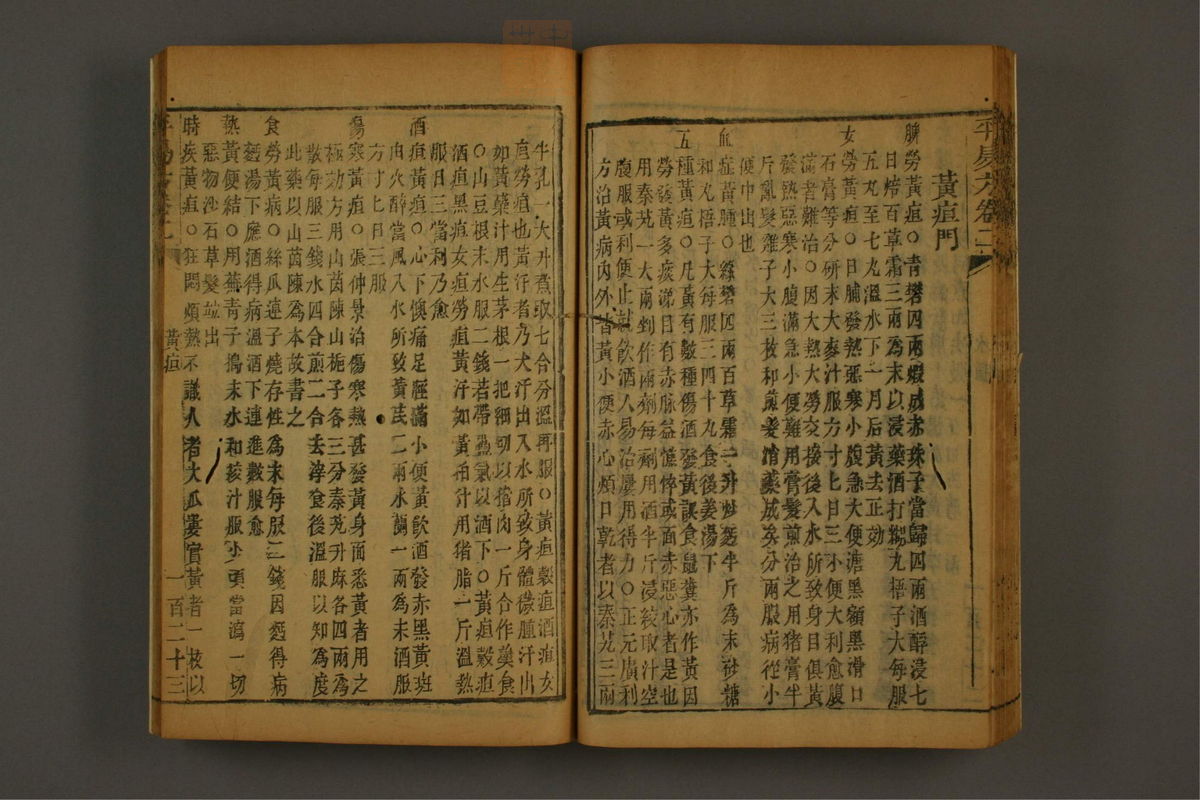 黃疸門
脾勞黃疸○青礬四兩煆成赤珠子當歸四兩酒醉浸七
日焙百草霜三兩為末以浸藥酒打糊丸梧子大每服
五丸至七丸溫水下一月后黃去正効
女勞黃疸○日脯發熱惡寒小腹急大便溏黑額黑滑口
石膏等分研末大麥汁服方寸匕日三小便大利愈腹
滿者難治○因大熱大勞交接後入水所致身目俱黃
發熱惡寒小腹滿急小便難用膏髮煎治之用猪膏半
斤亂髮雞子大三枚和煎髮消藥成矣分兩服病從小
便中出也
血症黃腫○綠礬四兩百草霜一升炒麪半斤為末砂糖
和丸梧子大每服三四十丸食後姜湯下
五種黃疸○凡黃有數種傷酒發黃誤食鼠糞亦作黃因
勞發黃多痰涕目有赤脉益憔悴或面赤惡心者是也
用秦艽一大兩剉作兩劑每劑用酒半斤浸絞取汁空
腹服或利便止就飲酒人易治屢用得力○正元廣利
方治黃病內外皆黃小便赤心煩口乾者以秦艽三兩
牛乳一大升煮取七合分溫再服○黃疸穀疸酒疸女
疸勞疸也黃汗者乃大汗出入水所致身體微腫汗出
如黃蘗汁用生茅根一把細切以猪肉一斤合作羹食
○山豆根末水服二錢若帶蠱氣以酒下○黃疸穀疸
酒疸黑疸女疸勞疸黃汗如黃蘗汁用猪脂一斤溫熱
服日三當利乃愈
酒疸黃疸○心下懊痛足脛滿小便黃飲酒發赤黑黃斑
由大醉當風入水所致黃芪二兩木蘭一兩為末酒服
方寸匕日三服
傷寒黃疸○張仲景治傷寒熱甚發黃身面悉黃者用之
極効方用山茵陳山梔子各三分秦艽升麻各四兩為
散每服三錢水四合煎二合去滓食後溫服以知為度
此藥以山茵陳為本故書之
食勞黃病○絲瓜連子燒存性為末每服二錢因麪得病
麪湯下壓酒得病溫酒下連進數服愈
熱黃便結○用蕪青子搗末水和絞汁服少頃當瀉一切
惡物沙石草髮並出
時疾黃疸○狂悶煩熱不識人者大瓜蔞實黃者一枚以
黃疸
一百二十三